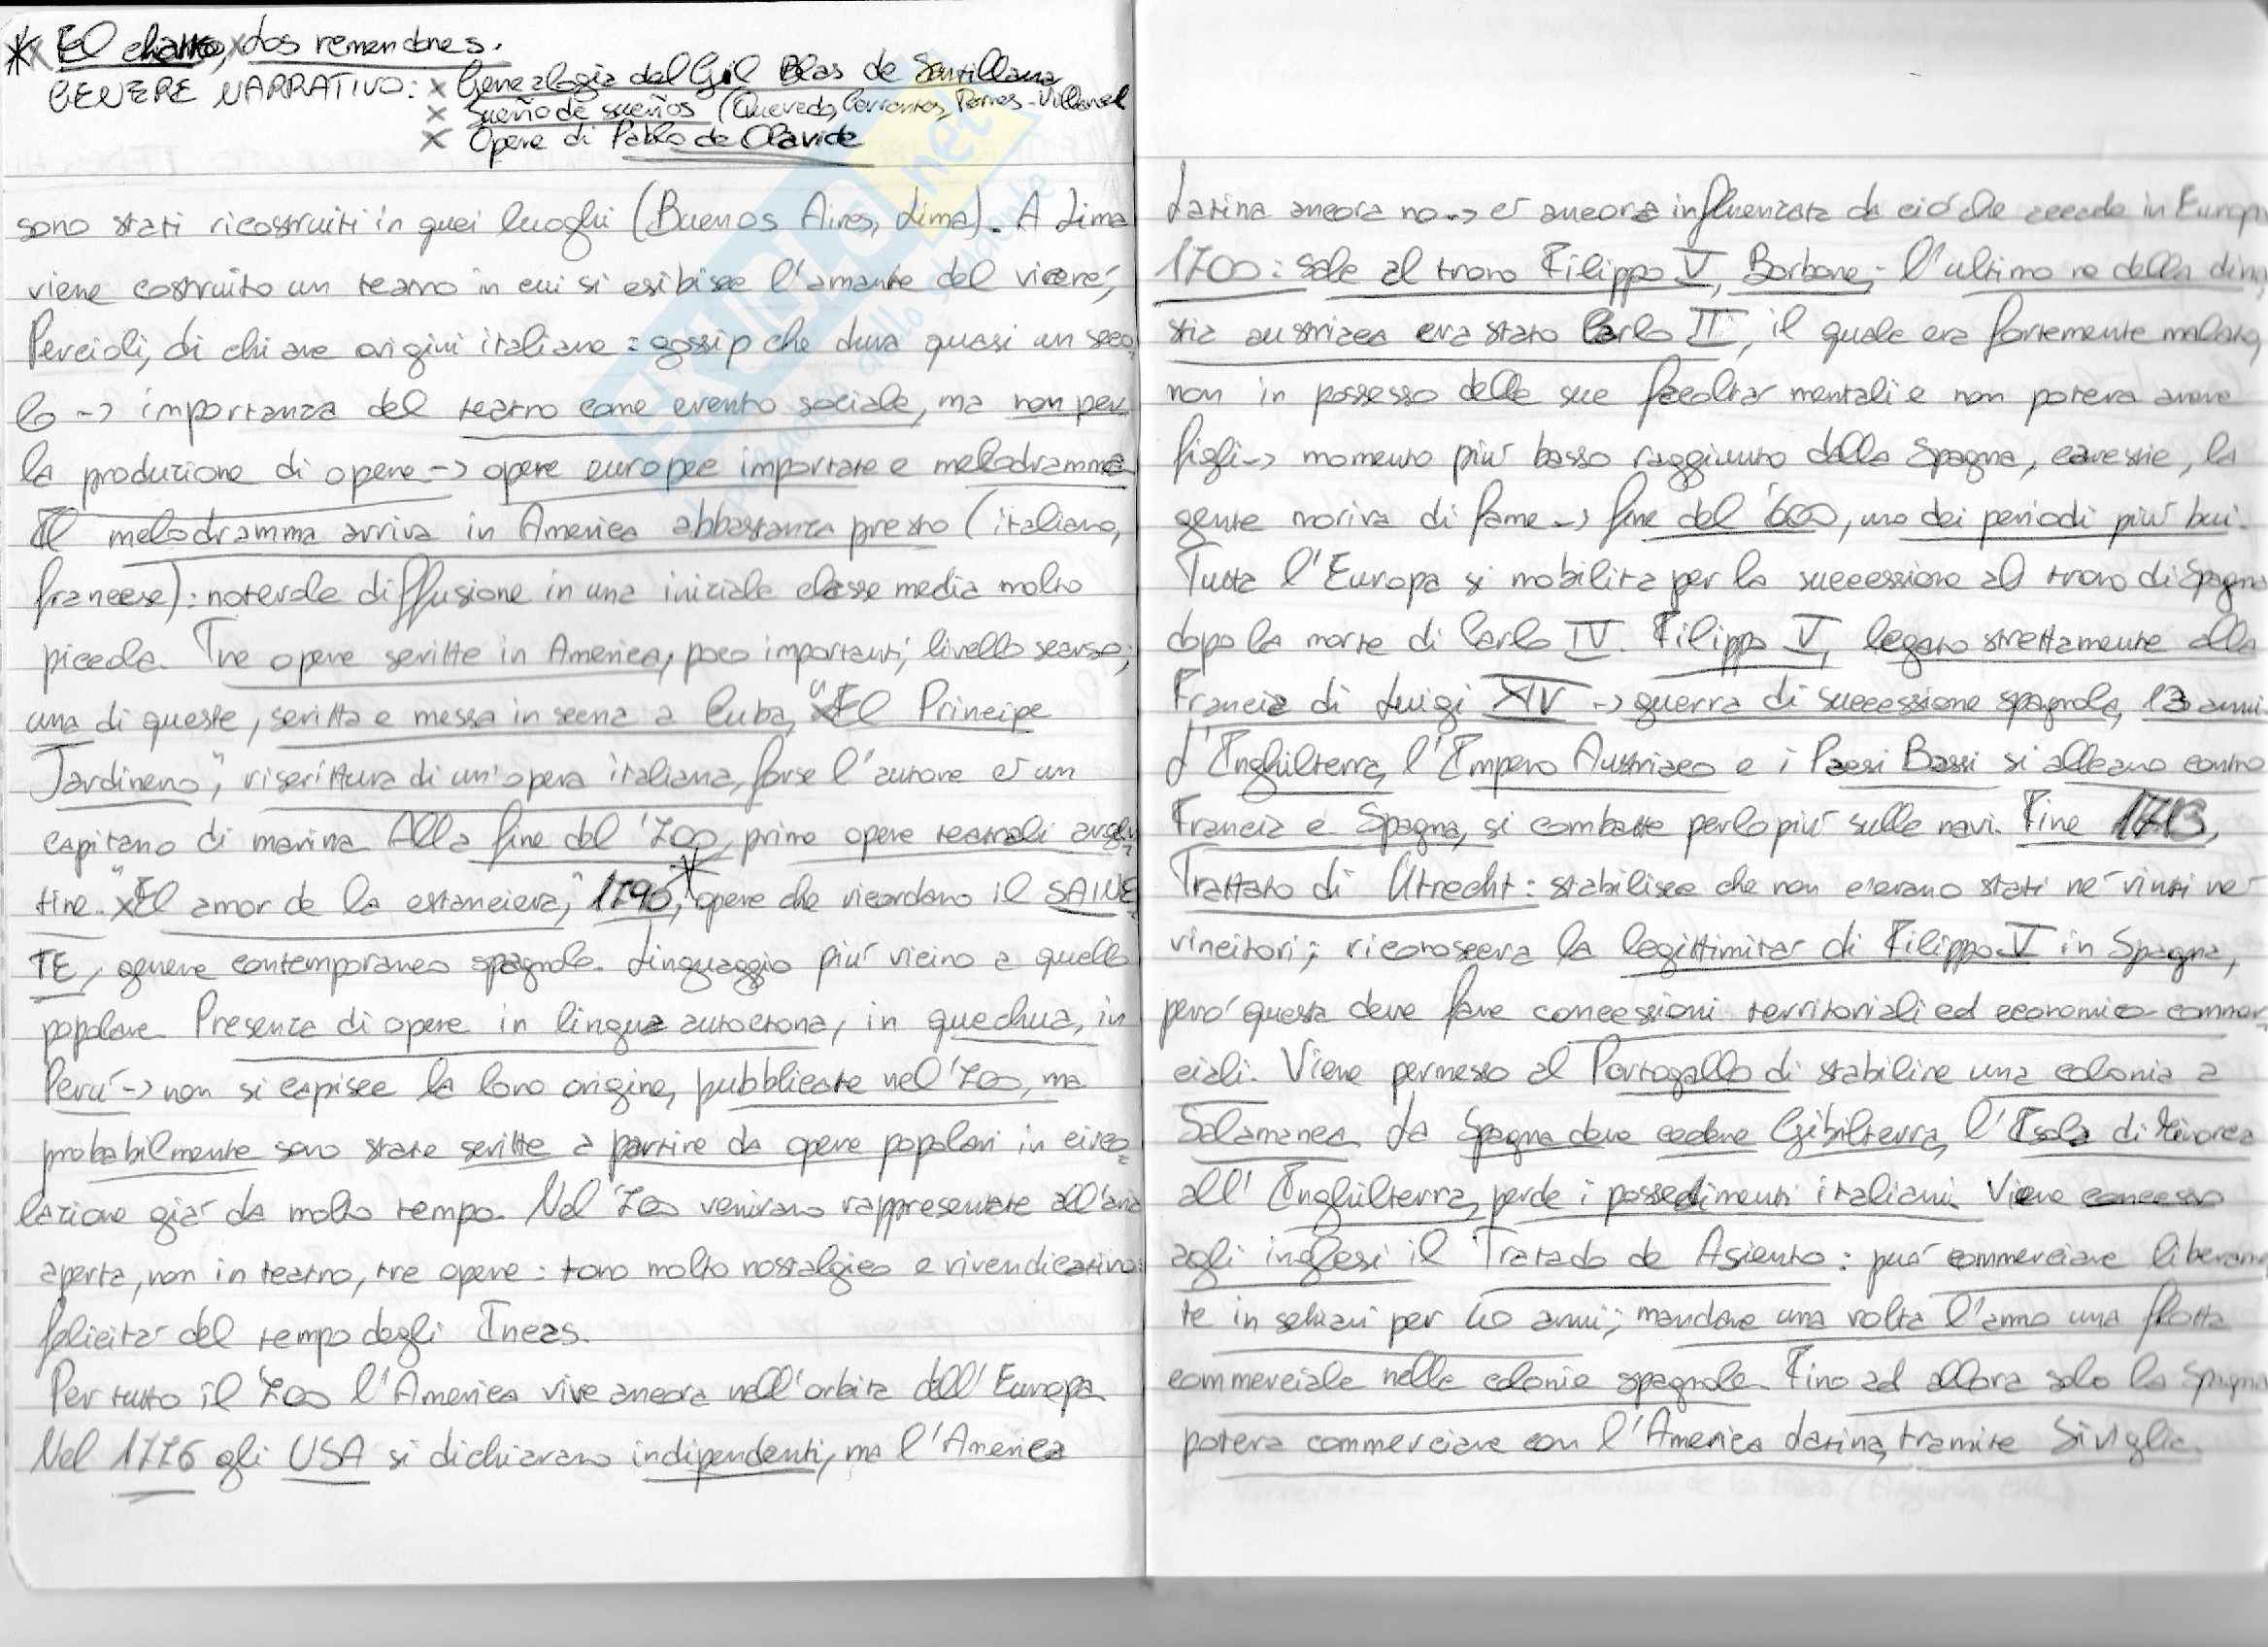 * x El charro, x Los remendones.
GENERE NARRATIVO: x Genealogia del Gil Blas de Santillana
x Sueño de sueños (Quevedo, Cervantes, Torres-Villaroel
x Opere di Pablo de Olavide
sono stati ricostruiti in quei luoghi (Buenos Aires, Lima). A Lima
viene costruito un teatro in cui si esibisce l'amante del viceré,
Percioli, di chiare origini italiane: gossip che dura quasi un seco
lo -> importanza del teatro come evento sociale, ma non per
la produzione di opere -> opere europee importate e melodramma
Il melodramma arriva in America abbastanza presto (italiano,
francese): notevole diffusione in una iniziale classe media molto
piccola. Tre opere scritte in America, poco importanti, livello scarso;
una di queste, scritta e messa in scena a Cuba, "x El Principe
Jardinero", riscrittura di un'opera italiana, forse l'autore è un
capitano di marina. Alla fine del '700 prime opere teatrali argen
tine. "x El amor de la estanciera," 1790*, opere che ricordano il SAINE
TE, genere contemporaneo spagnolo. Linguaggio più vicino a quello
popolare. Presenza di opere in lingua autoctona, in quechua, in
Perù -> non si capisce la loro origine, pubblicate nel '700, ma
probabilmente sono state scritte a partire da opere popolari in circo
lazione già da molto tempo. Nel '700 venivano rappresentate all'aria
aperta, non in teatro, tre opere: tono molto nostalgico e rivendicativo:
felicità del tempo degli Incas.
Per tutto il '700 l'America vive ancora nell'orbita dell'Europa.
Nel 1776 gli USA si dichiarano indipendenti, ma l'America
Latina ancora no -> è ancora influenzata da ciò che accade in Europa
1700: sale al trono Filippo V, Borbone; l'ultimo re della dina
stia austriaca era stato Carlo II, il quale era fortemente malato,
non in possesso delle sue facoltà mentali e non poteva avere
figli -> momento più basso raggiunto dalla Spagna, carestie, la
gente moriva di fame -> fine del '600, uno dei periodi più bui.
Tutta l'Europa si mobilita per la successione al trono di Spagna
dopo la morte di Carlo IV. Filippo V, legato strettamente alla
Francia di Luigi XIV -> guerra di successione spagnola, 13 anni.
L'Inghilterra, l'Impero Austriaco e i Paesi Bassi si alleano contro
Francia e Spagna, si combatte perlopiù sulle navi. Fine 1713,
Trattato di Utrecht: stabilisce che non c'erano stati né vinti né
vincitori; riconosceva la legittimità di Filippo V in Spagna,
però questa deve fare concessioni territoriali ed economico-commer
ciali. Viene permesso al Portogallo di stabilire una colonia a
Salamanca. La Spagna deve cedere Gibilterra, l'Isola di Minorca
all'Inghilterra, perde i possedimenti italiani. Viene concesso
agli inglesi il Tratado de Asiento: può commerciare liberamen
te in schiavi per 40 anni; mandare una volta l'anno una flotta
commerciale nelle colonie spagnole. Fino ad allora solo la Spagna
poteva commerciare con l'America Latina, tramite Siviglia.